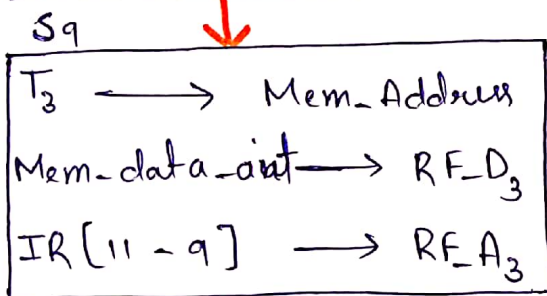 S9
T3 → Mem_Address
Mem-data-out → RF_D3
IR[11-9] → RF_A3